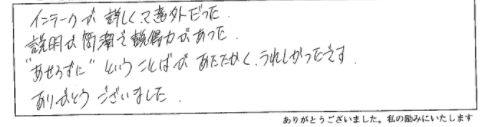 インテークが詳しくて意外だった.
説明が簡潔で説得力があった.
"あせらずに"ということばが あたたかく、うれしかったです.
ありがとうございました.
ありがとうございました。私の励みにいたします